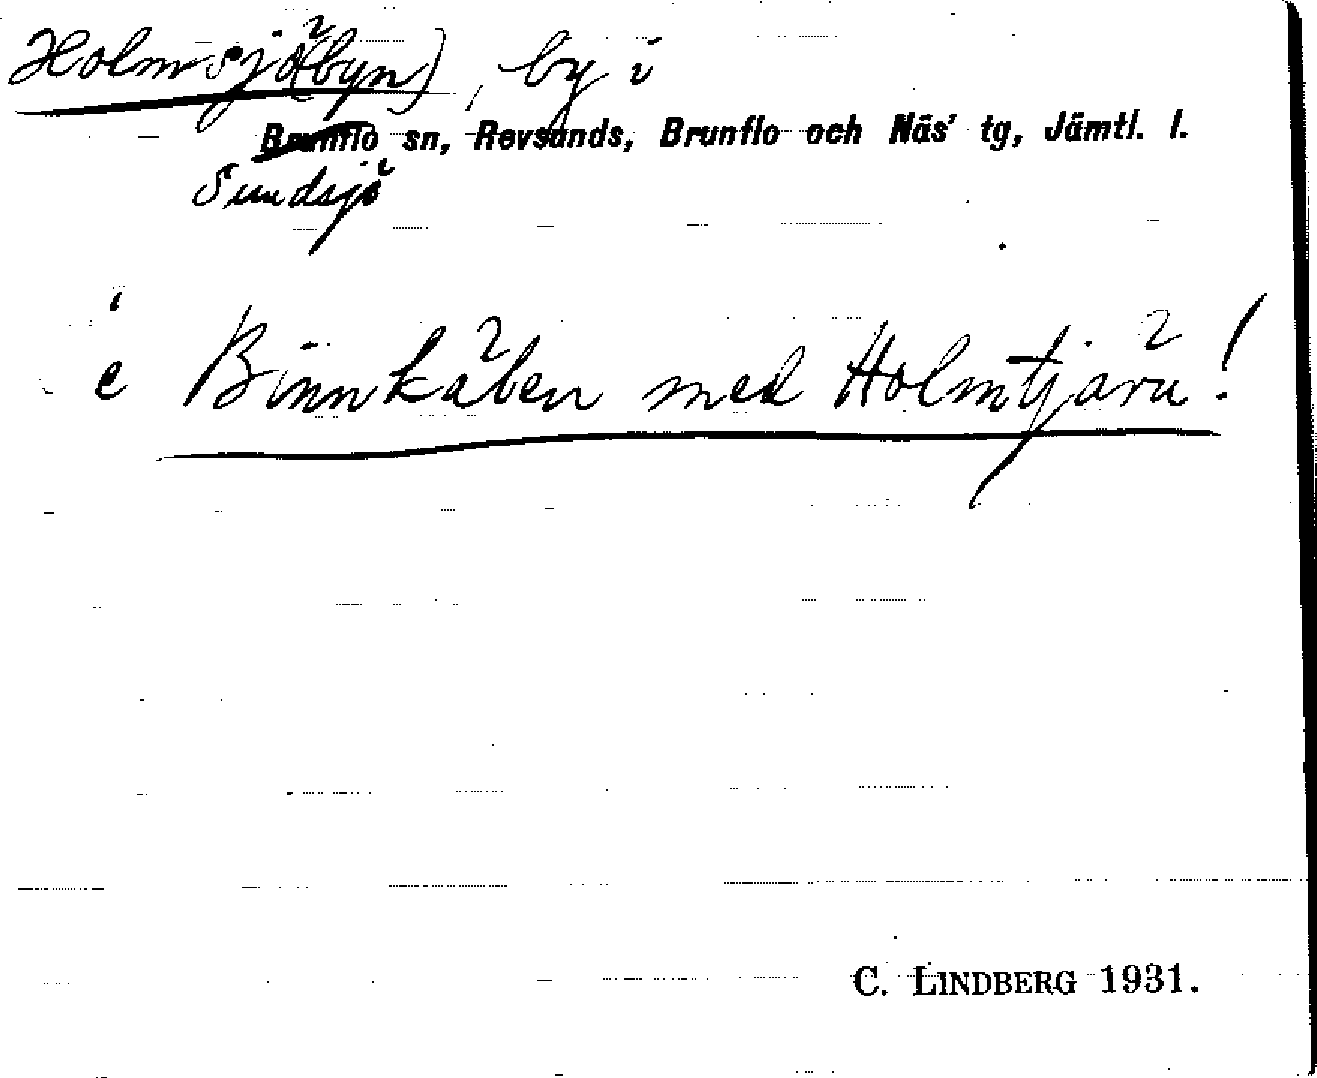 Holmsjö(byn), by i
Brunflo sn, Revsunds, Brunflo och Näs' tg, Jämtl. l.
Sundsjö
i
e Binnkåben med Holmtjäru!
C. LINDBERG 1931.